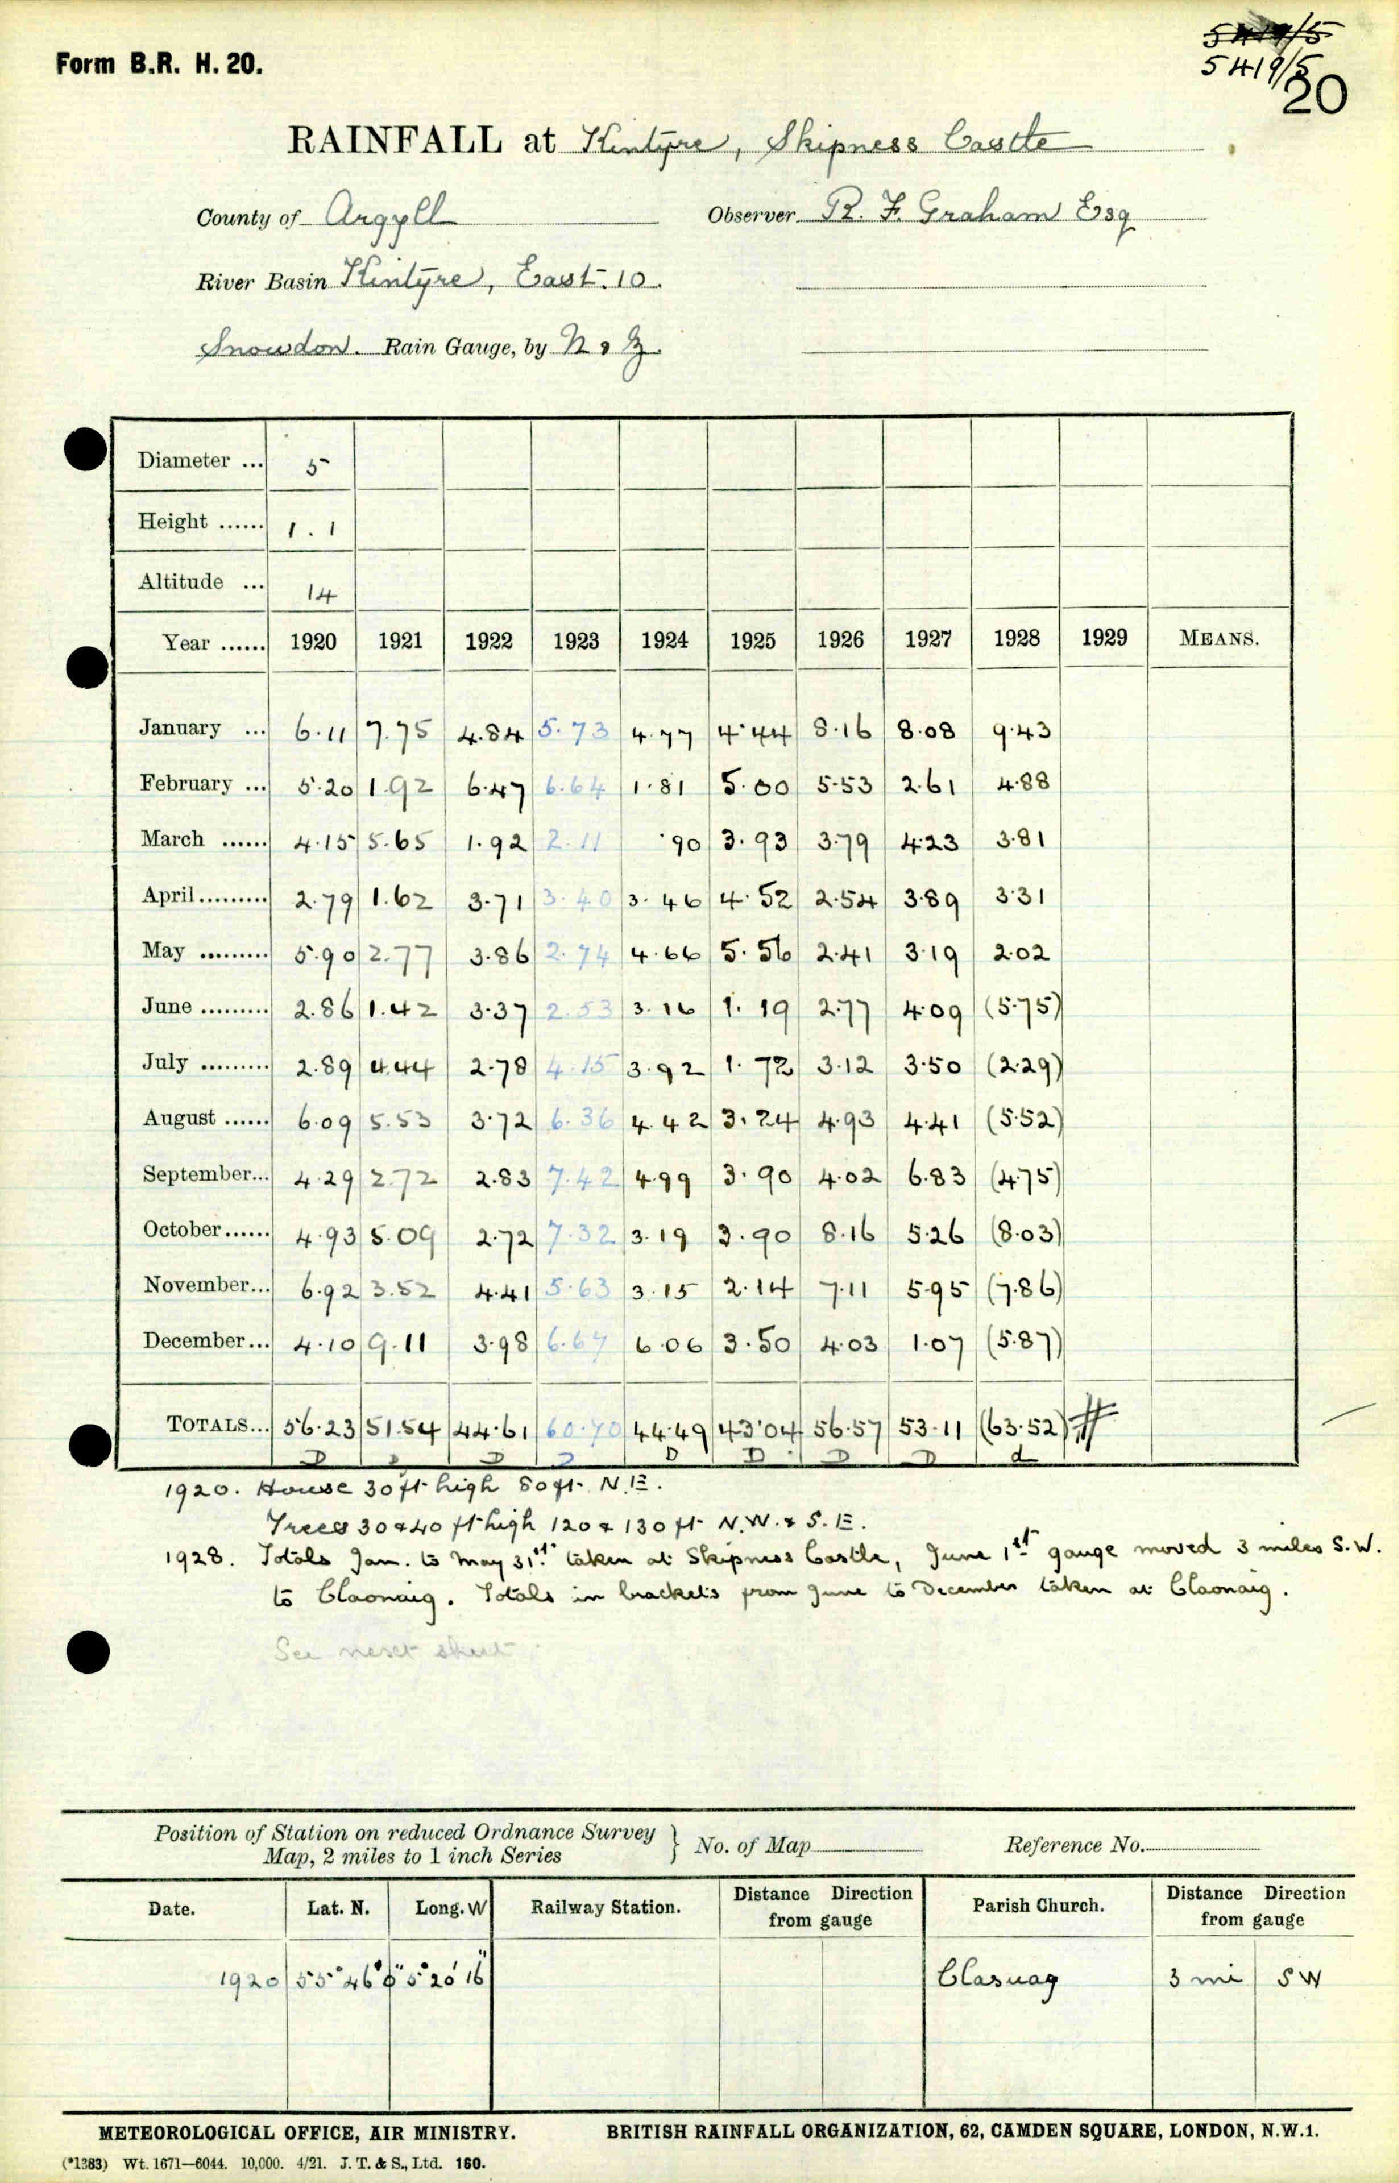 Form B.R. H. 20.
5419/5
5419/5
20
RAINFALL at Kintyre, Skipness Castle
County of Argyll Observer R. F. Graham Esq
River Basin Kintyre, East. 10.
Snowdon. Rain Gauge, by N & Z.
Diameter ... 5
Height ...... 1.1
Altitude ... 14
Year ...... 1920 1921 1922 1923 1924 1925 1926 1927 1928 1929 MEANS.
January ... 6.11 7.75 4.84 5.73 4.77 4.44 8.16 8.08 9.43
February ... 5.20 1.92 6.47 6.64 1.81 5.00 5.53 2.61 4.88
March ...... 4.15 5.65 1.92 2.11 .90 3.93 3.79 4.23 3.81
April ......... 2.79 1.62 3.71 3.40 3.46 4.52 2.54 3.89 3.31
May ......... 5.90 2.77 3.86 2.74 4.66 5.56 2.41 3.19 2.02
June ......... 2.86 1.42 3.37 2.53 3.16 1.19 2.77 4.09 (5.75)
July ......... 2.89 4.44 2.78 4.15 3.92 1.72 3.12 3.50 (2.29)
August ...... 6.09 5.53 3.72 6.36 4.42 3.24 4.93 4.41 (5.52)
September... 4.29 2.72 2.83 7.42 4.99 3.90 4.02 6.83 (4.75)
October...... 4.93 5.09 2.72 7.32 3.19 3.90 8.16 5.26 (8.03)
November... 6.92 3.52 4.41 5.63 3.15 2.14 7.11 5.95 (7.86)
December... 4.10 9.11 3.98 6.67 6.06 3.50 4.03 1.07 (5.87)
TOTALS... 56.23 51.54 44.61 60.70 44.49 43.04 56.57 53.11 (63.52)
D D D D D D D D d
1920. House 30 ft high 80 ft. N.E.
Trees 30 & 40 ft high 120 & 130 ft N.W. & S.E.
1928. Totals Jan. to May 31st. taken at Skipness Castle, June 1st gauge moved 3 miles S.W.
to Claonaig. Totals in brackets from June to December taken at Claonaig.
See next sheet
Position of Station on reduced Ordnance Survey
Map, 2 miles to 1 inch Series } No. of Map Reference No.
Date. Lat. N. Long. W Railway Station. Distance Direction from gauge Parish Church. Distance Direction from gauge
1920 55° 46' 0" 5° 20' 16" Clasuag 3 mi SW
METEOROLOGICAL OFFICE, AIR MINISTRY. BRITISH RAINFALL ORGANIZATION, 62, CAMDEN SQUARE, LONDON, N.W.1.
(*1383) Wt. 1671—6044. 10,000. 4/21. J. T. & S., Ltd. 160.